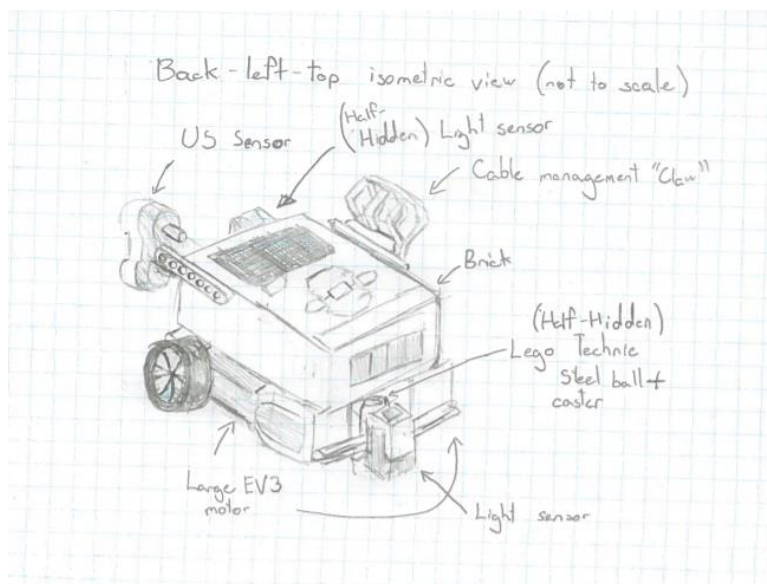 Back-left-top isometric view (not to scale)
US Sensor
(Half-
Hidden) Light sensor
Cable management "Claw"
Brick
(Half-Hidden)
Lego Technic
Steel ball +
caster
Large EV3
motor
Light sensor